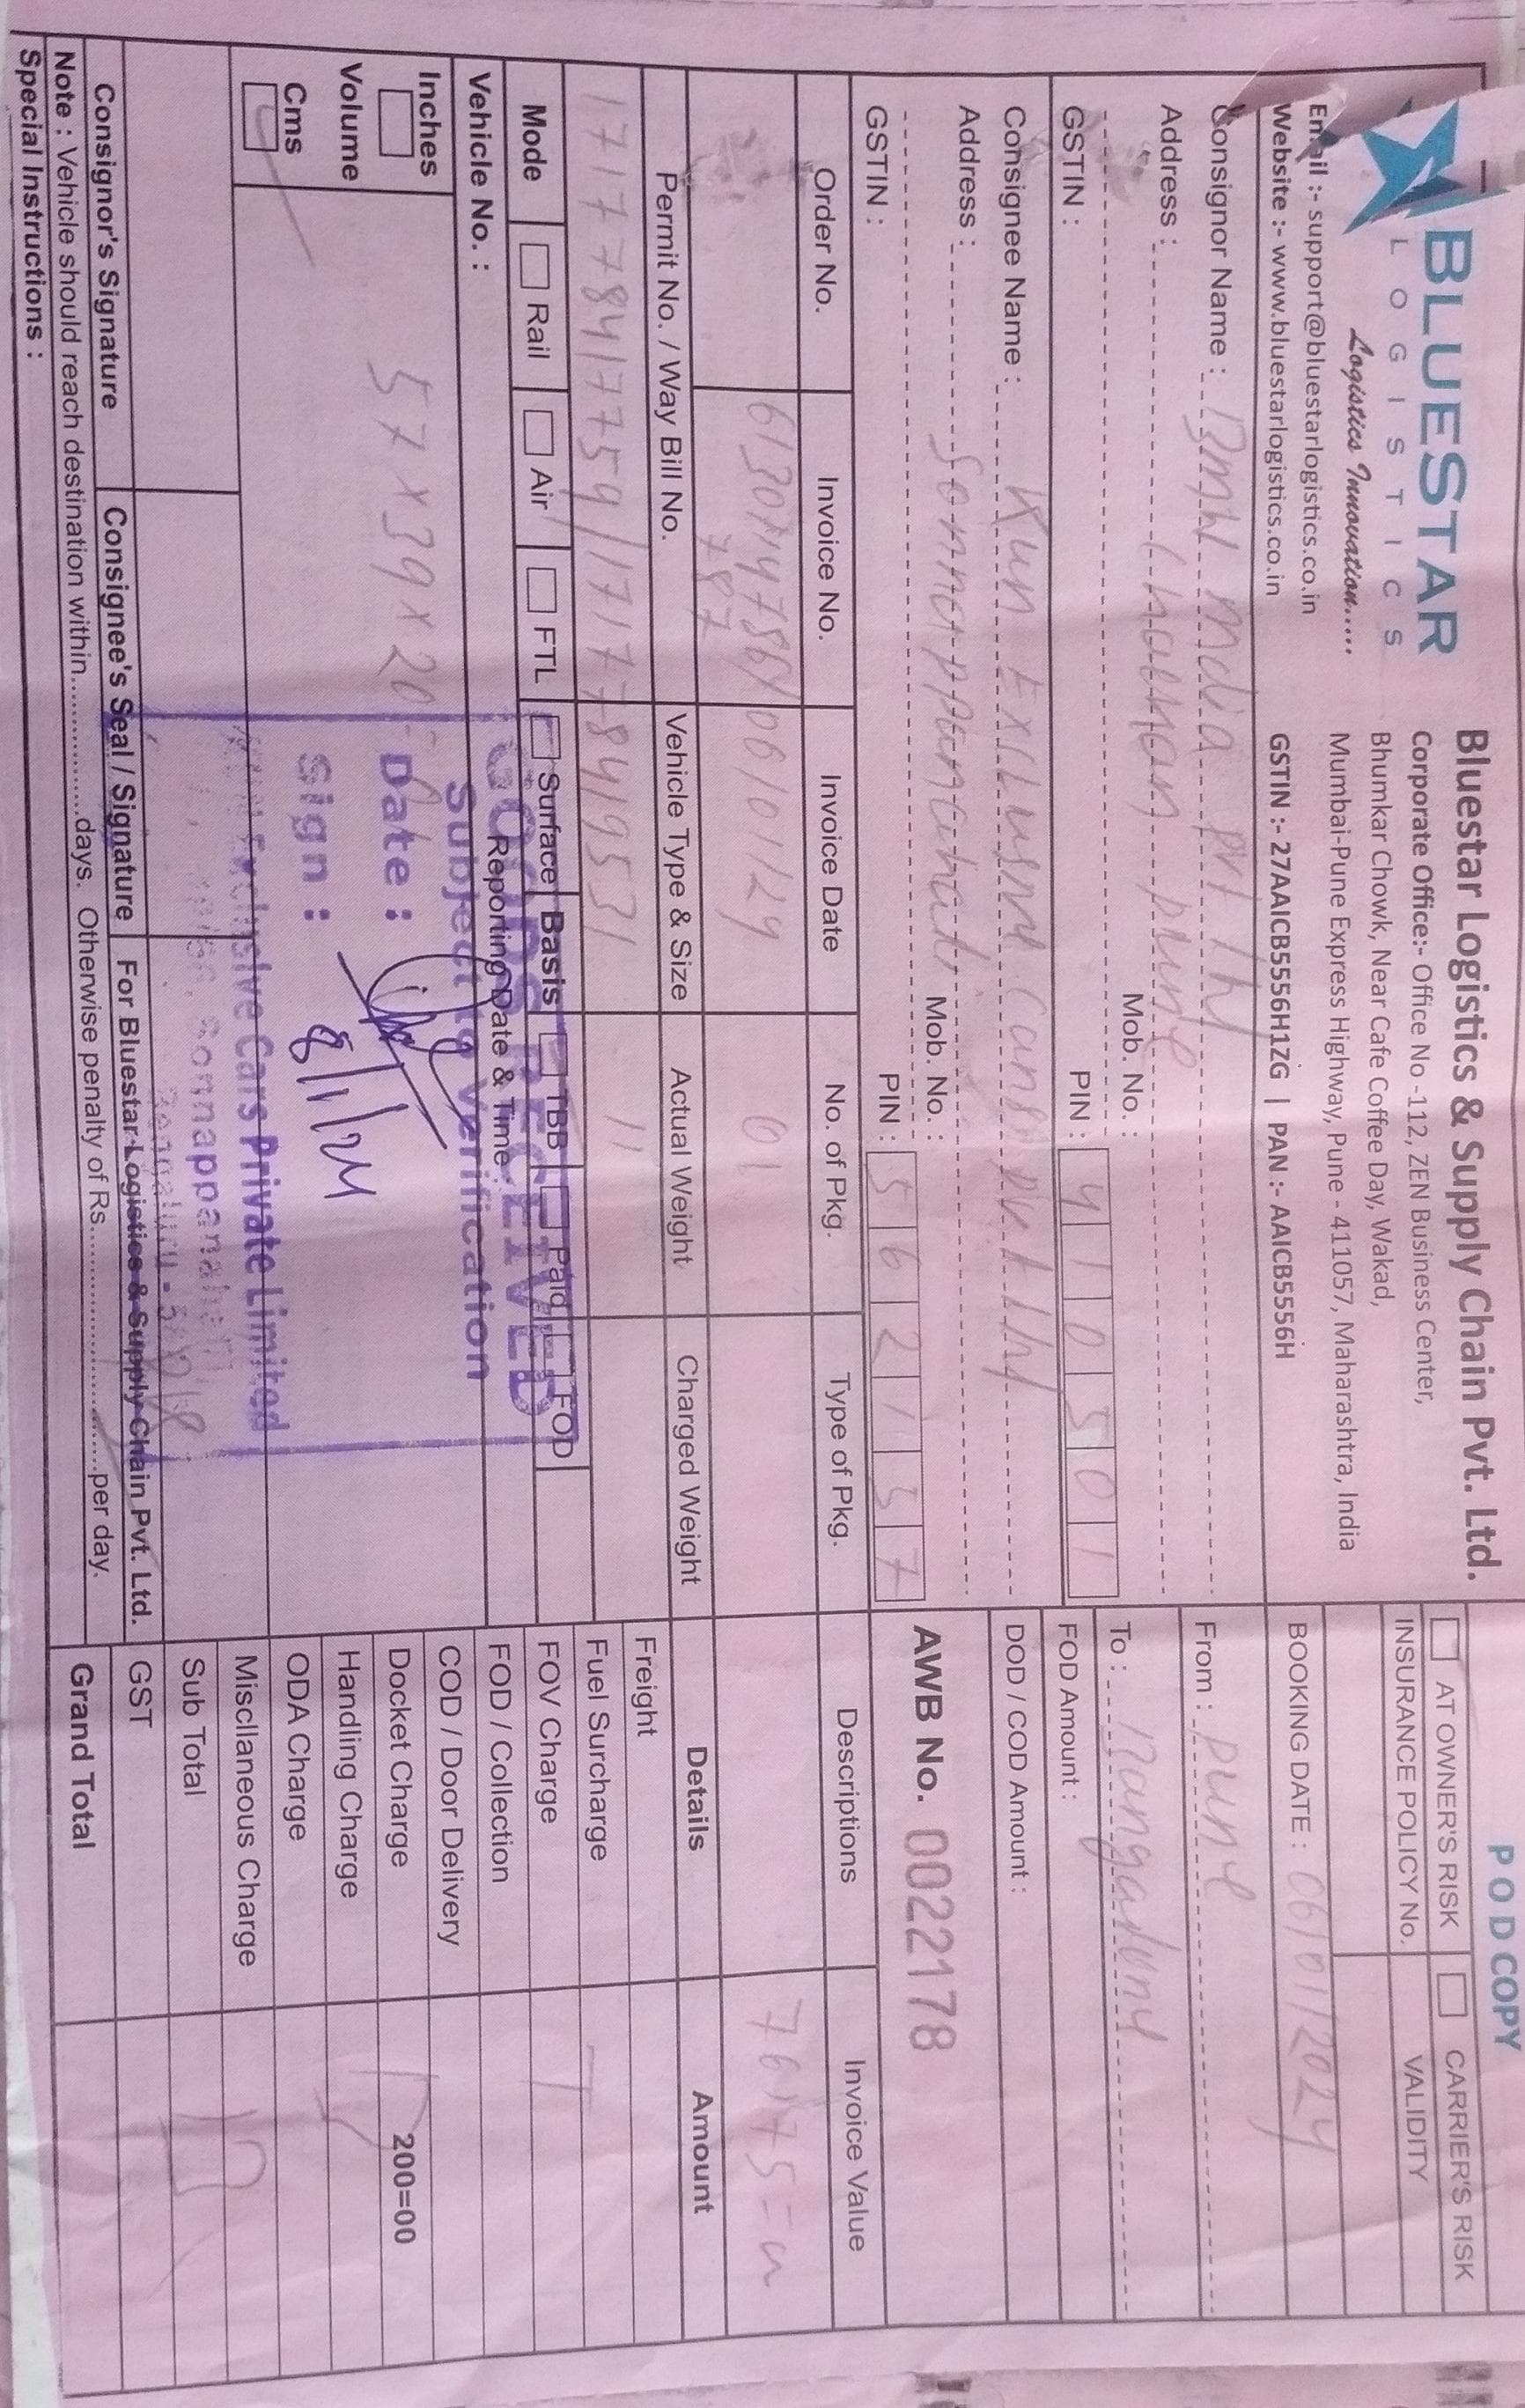 POD COPY
BLUESTAR
LOGISTICS
Logistics Innovation.....
Email :- support@bluestarlogistics.co.in
Website :- www.bluestarlogistics.co.in
Bluestar Logistics & Supply Chain Pvt. Ltd.
Corporate Office:- Office No -112, ZEN Business Center,
Bhumkar Chowk, Near Cafe Coffee Day, Wakad,
Mumbai-Pune Express Highway, Pune - 411057, Maharashtra, India
GSTIN :- 27AAICB5556H1ZG | PAN :- AAICB5556H
AT OWNER'S RISK CARRIER'S RISK
INSURANCE POLICY No. VALIDITY
BOOKING DATE : 06/01/2024
Consignor Name : pvt ltd
Address : pune
Mob. No. :
GSTIN : PIN : 410501
From : pune
To :
FOD Amount :
Consignee Name : Kun Exclusive Cans pvt ltd
Address :
Mob. No. :
GSTIN : PIN : 562157
DOD / COD Amount :
AWB No. 00221178
Order No. Invoice No. Invoice Date No. of Pkg. Type of Pkg. Descriptions Invoice Value
787 06/01/24 01
Permit No. / Way Bill No. Vehicle Type & Size Actual Weight Charged Weight Details Amount
171778417759/171778419531 11
Freight
Fuel Surcharge
Mode Rail Air FTL Surface Basis TBB Paid FOD
FOV Charge
Vehicle No. : Reporting Date & Time
FOD / Collection
COD / Door Delivery
Docket Charge 200=00
Handling Charge
ODA Charge
Miscllaneous Charge
Sub Total
GST
Grand Total
Inches
Volume
Cms
57x39x20
GOODS RECEIVED
Subject to Verification
Date :
Sign : 8/1/24
KUN Exclusive Cars Private Limited
Sonnappanahalli
Consignor's Signature Consignee's Seal / Signature For Bluestar Logistics & Supply Chain Pvt. Ltd.
Note : Vehicle should reach destination within...............days. Otherwise penalty of Rs.........................per day.
Special Instructions :